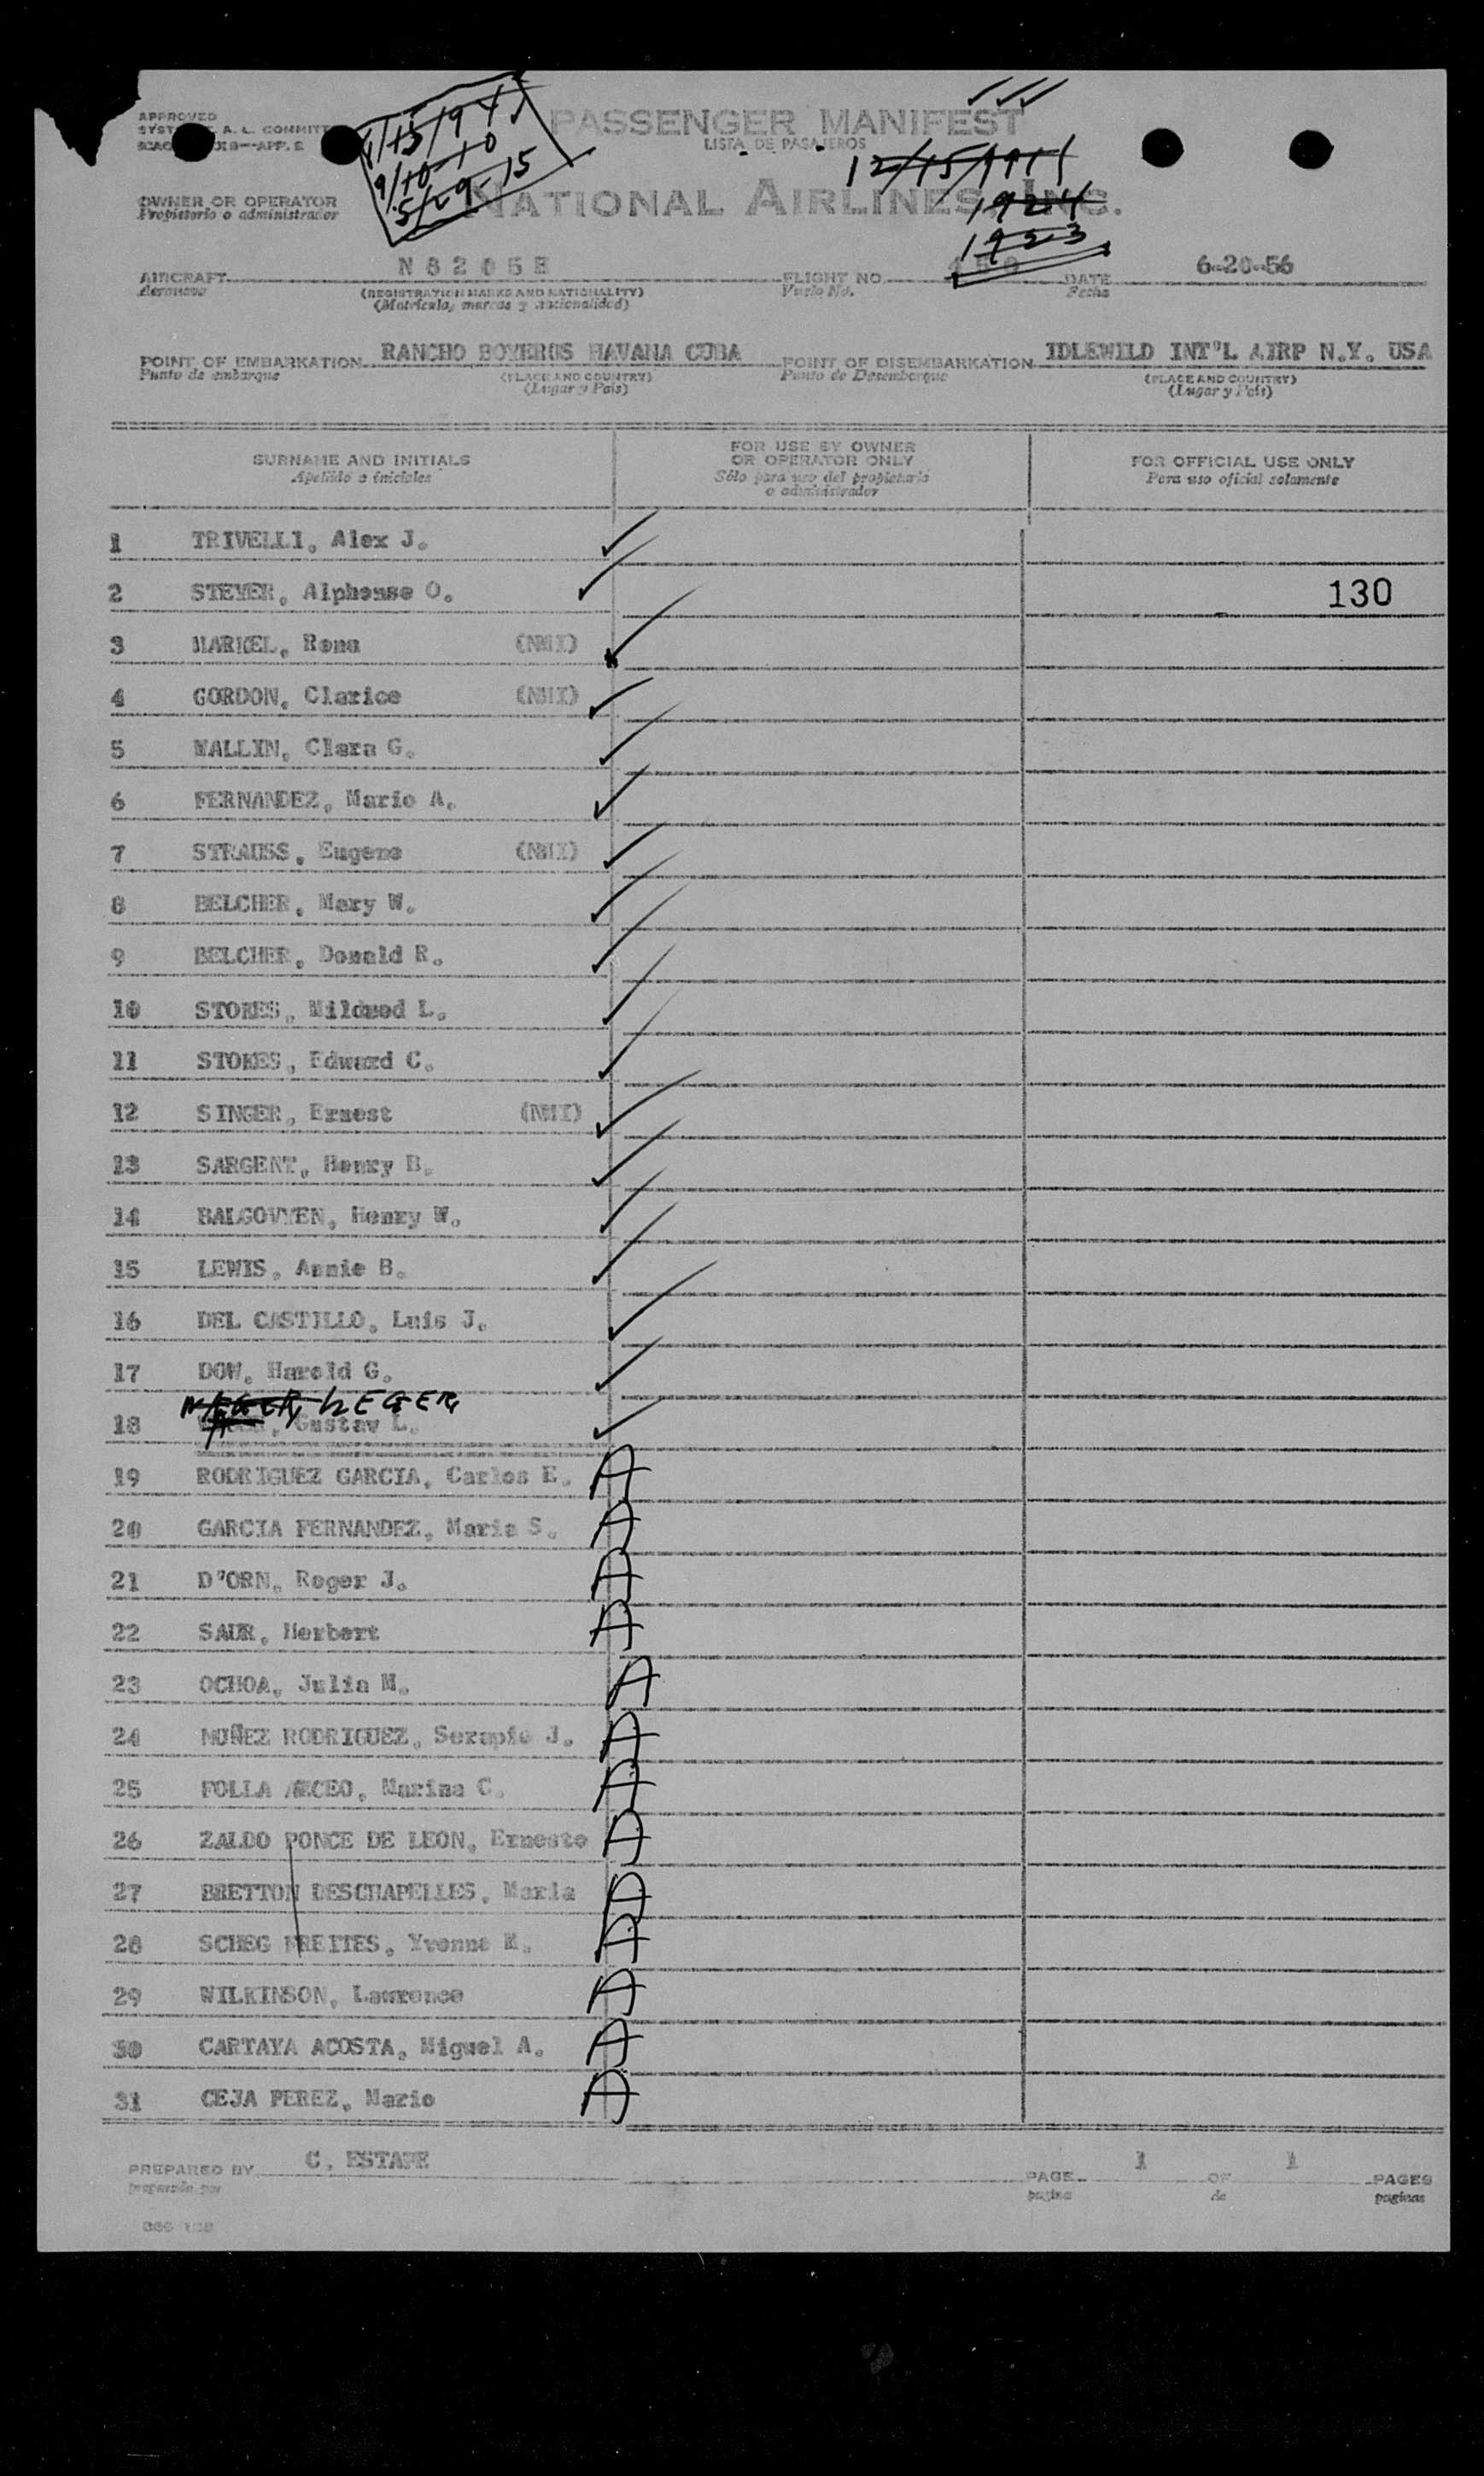 APPROVED
PASSENGER MANIFEST
LISTA DE PASAJEROS
12/15/1911
1924
1923
9/10-10
5/29-15
OWNER OR OPERATOR
Propietario o administrador
NATIONAL AIRLINES, INC.
AIRCRAFT N 8205H FLIGHT NO. DATE 6-20-56
Aeronave (REGISTRATION MARKS AND NATIONALITY) Vuelo No. Fecha
(Matricula, marcas y nacionalidad)
POINT OF EMBARKATION RANCHO BOYEROS HAVANA CUBA POINT OF DISEMBARKATION IDLEWILD INT'L AIRP N.Y. USA
Punto de embarque (PLACE AND COUNTRY) Punto de Desembarque (PLACE AND COUNTRY)
(Lugar y País) (Lugar y País)
SURNAME AND INITIALS FOR USE BY OWNER OR OPERATOR ONLY FOR OFFICIAL USE ONLY
Apellido e iniciales Sólo para uso del propietario o administrador Para uso oficial solamente
1 TRIVELLI, Alex J.
2 STEYER, Alphonse O. 130
3 MARKEL, Rona (NMI)
4 GORDON, Clarice (NMI)
5 WALLIN, Clara G.
6 FERNANDEZ, Mario A.
7 STRAUSS, Eugene (NMI)
8 BELCHER, Mary W.
9 BELCHER, Donald R.
10 STOKES, Mildred L.
11 STOKES, Edward C.
12 SINGER, Ernest (NMI)
13 SARGENT, Henry B.
14 BALGOVYEN, Henry W.
15 LEWIS, Annie B.
16 DEL CASTILLO, Luis J.
17 DOW, Harold G.
LEGER
18 Gustav L.
19 RODRIGUEZ GARCIA, Carlos E. A
20 GARCIA FERNANDEZ, Maria S. A
21 D'ORN, Roger J. A
22 SAUR, Herbert A
23 OCHOA, Julia M. A
24 NUÑEZ RODRIGUEZ, Serapio J. A
25 FOLLA Marina C. A
26 ZALDO PONCE DE LEON, Ernesto A
27 BRETTON DESCHAPELLES, Maria A
28 SCHEG FREITES, Yvonne A
29 WILKINSON, Lawrence A
30 CARTAYA ACOSTA, Miguel A. A
31 CEJA PEREZ, Mario A
PREPARED BY C. ESTAPE PAGE 1 OF 1 PAGES
preparado por pagina de paginas